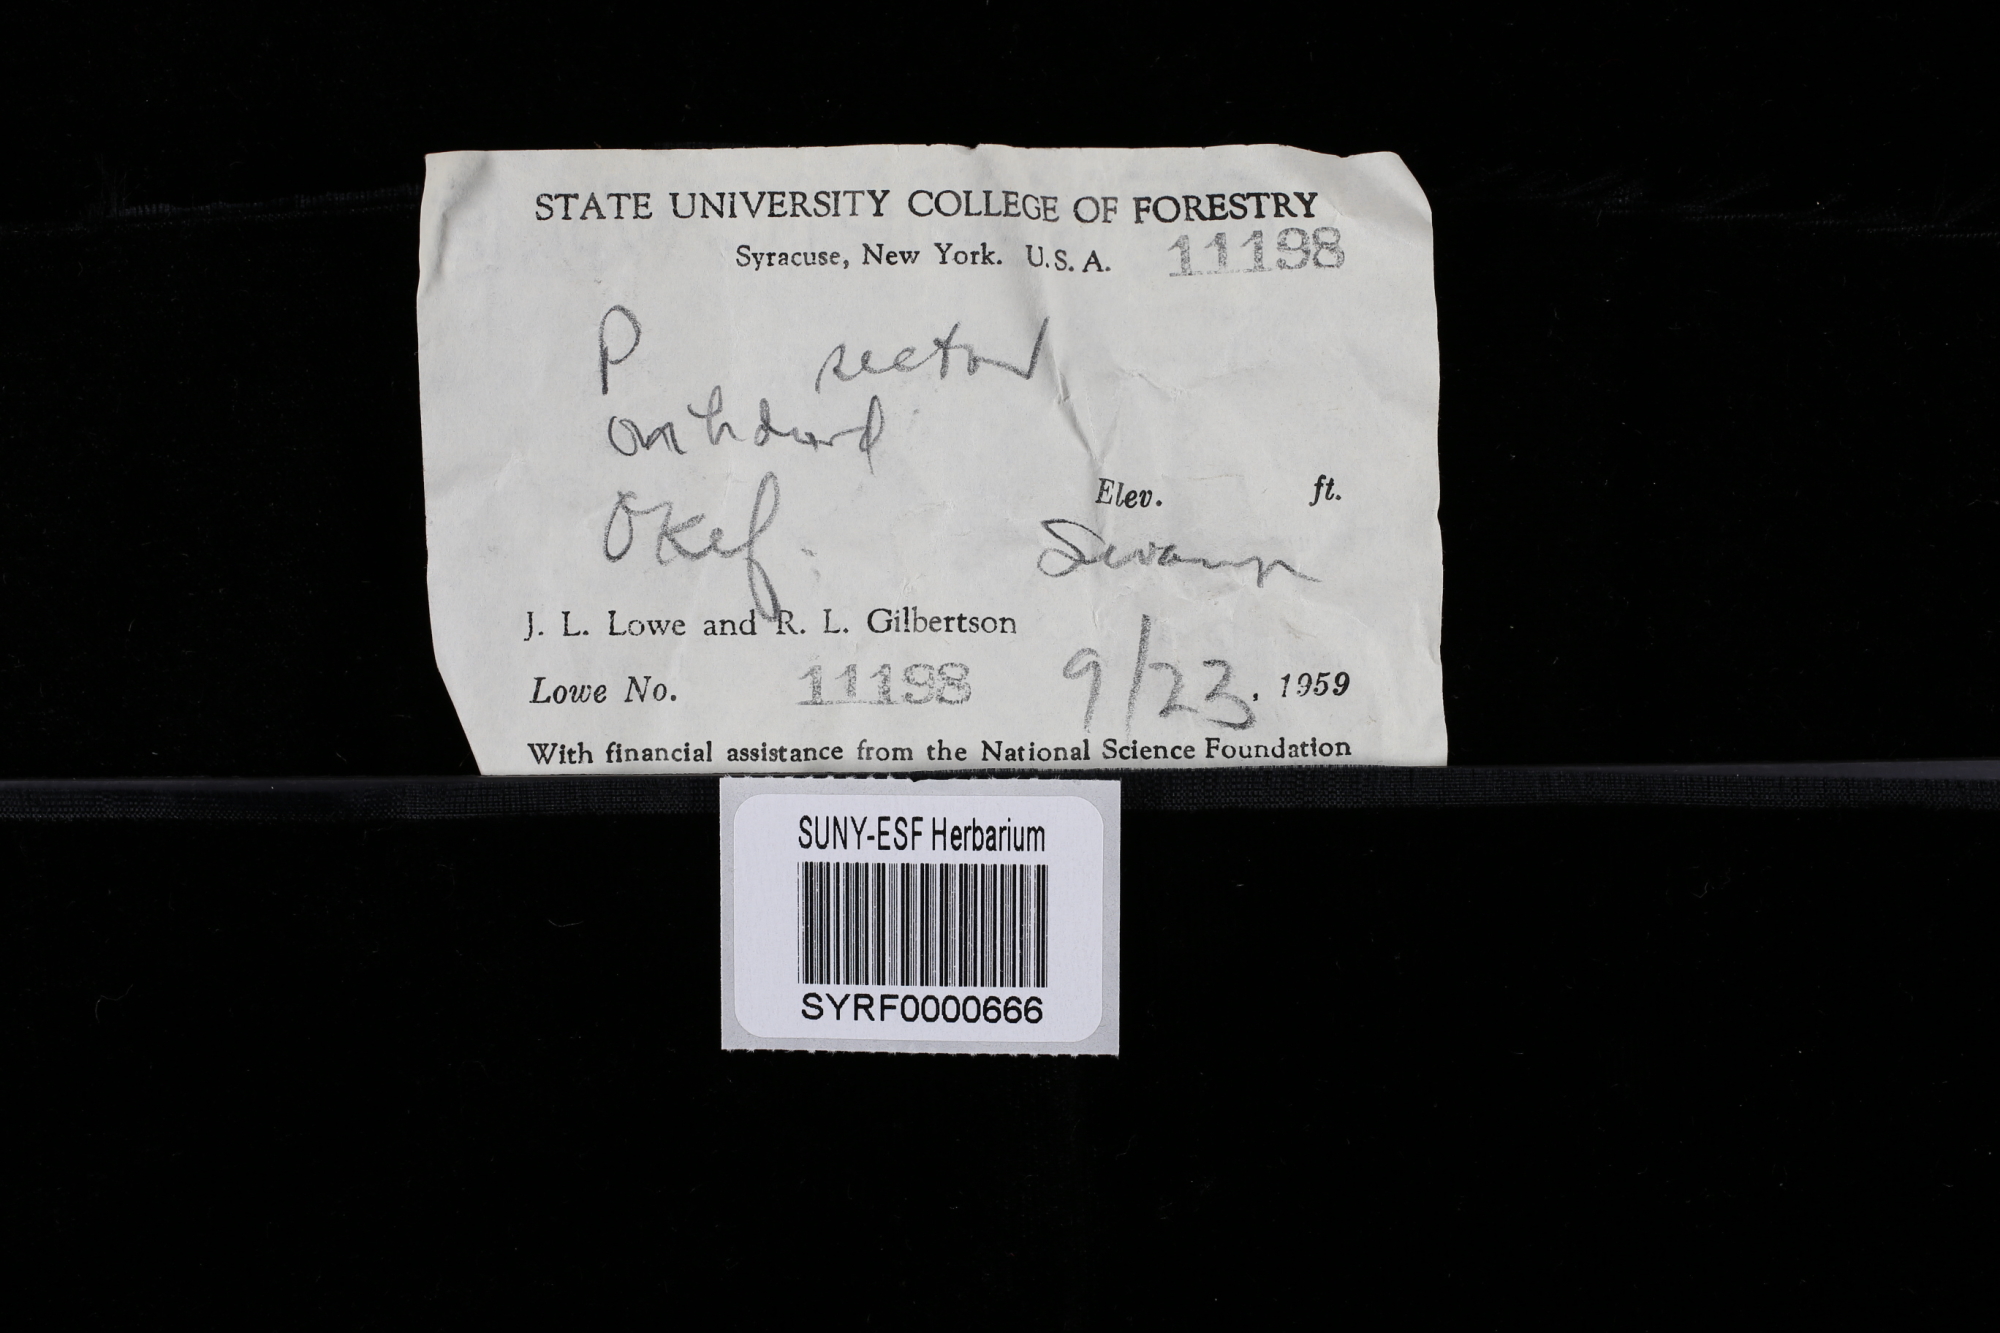 STATE UNIVERSITY COLLEGE OF FORESTRY
Syracuse, New York. U.S.A. 11198
P
on hdwd
Elev. ft.
Okef. Swamp
J. L. Lowe and R. L. Gilbertson
Lowe No. 11198 9/23, 1959
With financial assistance from the National Science Foundation
SUNY-ESF Herbarium
SYRF0000666